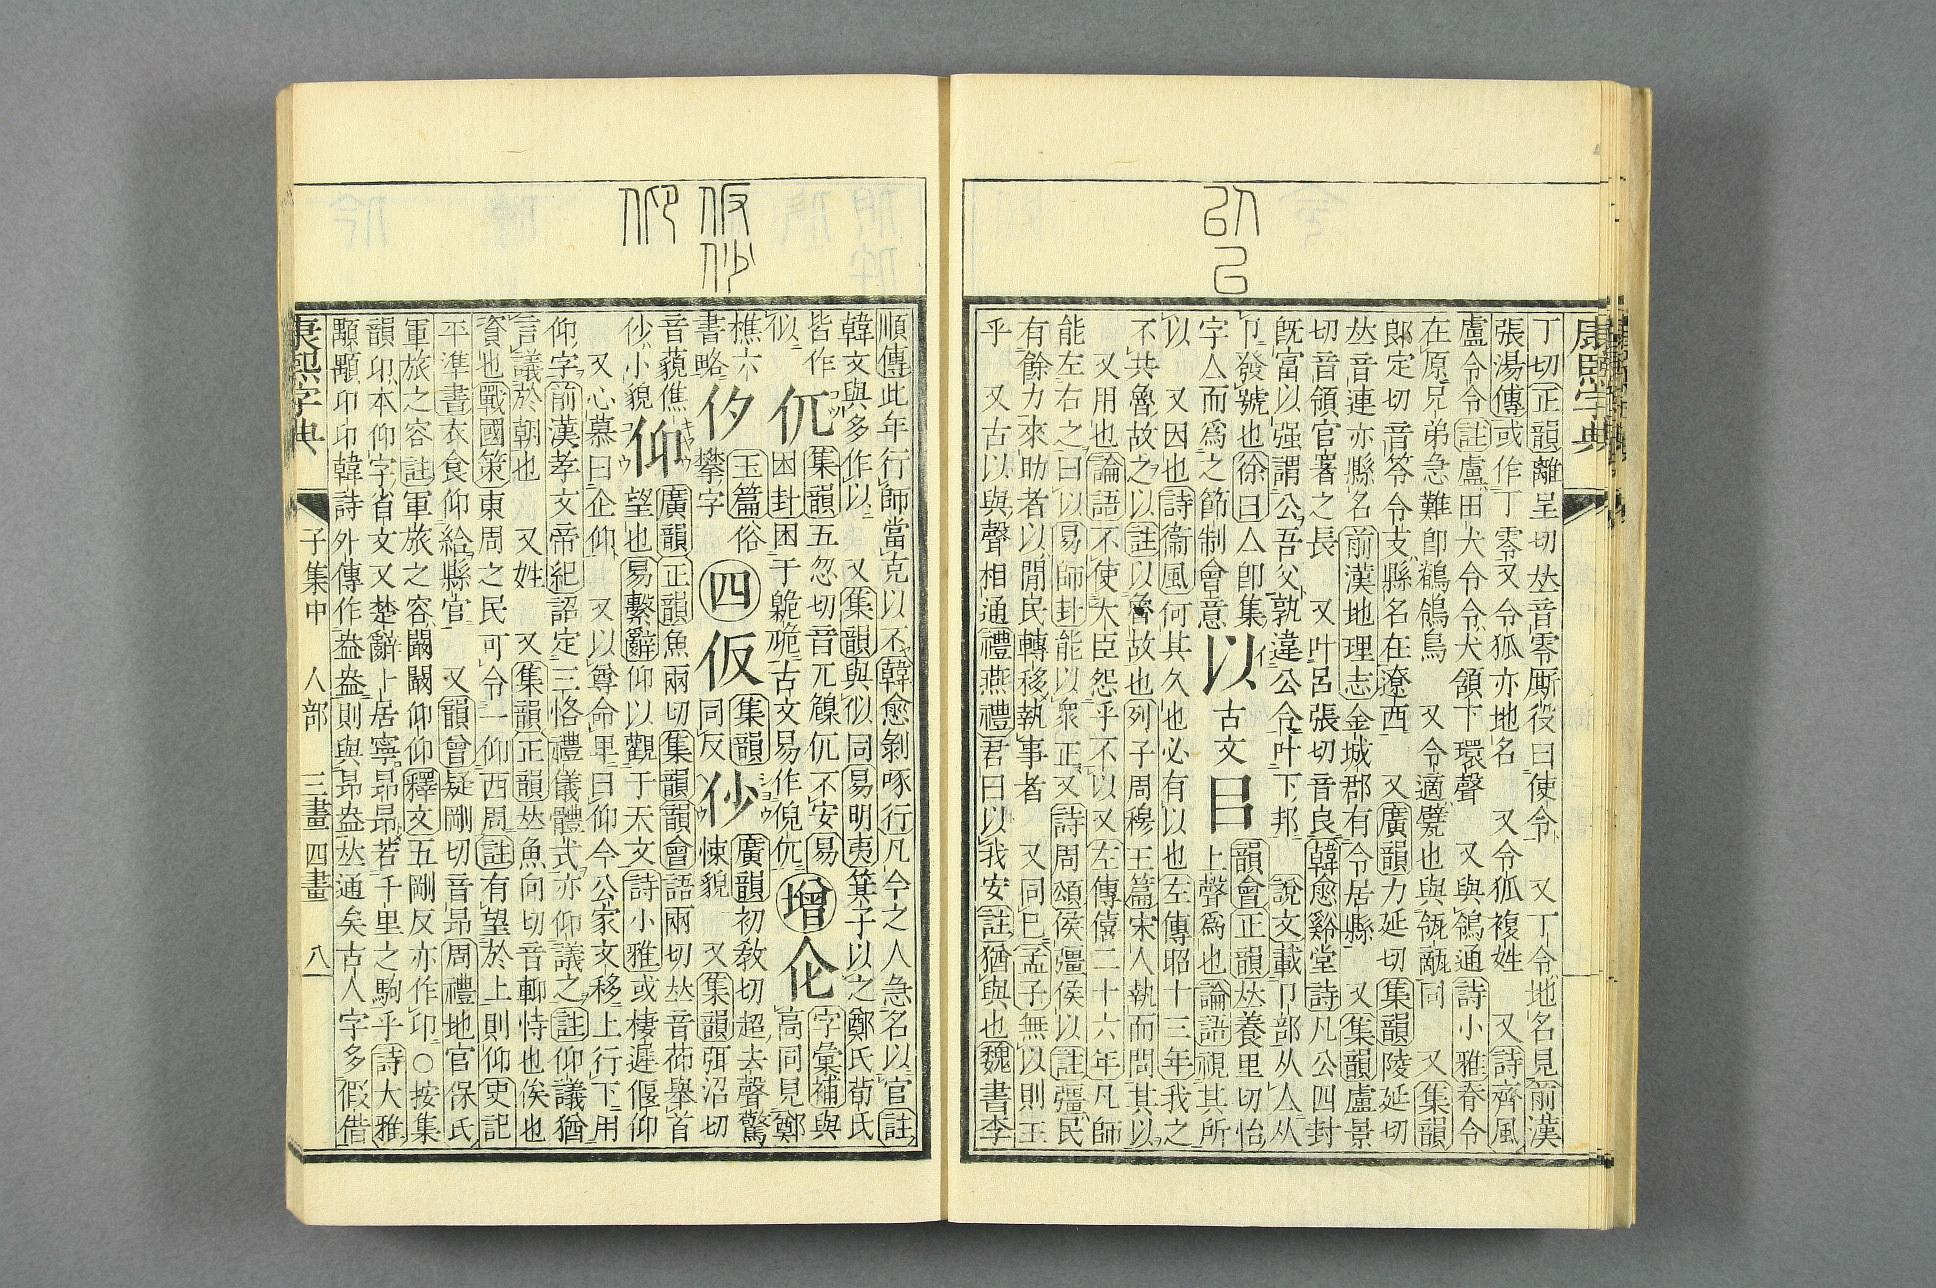 康熙字典
丁切正韻離呈切𠀤音零厮役曰使令 又丁令地名見前漢
張湯傳或作丁零又令狐亦地名 又令狐複姓 又詩齊風
盧令令註盧田犬令令犬頷下環聲 又與鴒通詩小雅脊令
在原兄弟急難卽鶺鴒鳥 又令適甓也與瓴甋同 又集韻
郞定切音笭令支縣名在遼西 又廣韻力延切集韻陵延切
𠀤音連亦縣名前漢地理志金城郡有令居縣 又集韻盧景
切音領官署之長 又叶呂張切音良韓愈谿堂詩凡公四封
旣富以强謂公吾父孰違公令叶下邦
以 古文 㠯
說文載卩部从亼从
卩發號也徐曰亼卽集
韻會正韻𠀤養里切怡
字亼而爲之節制會意
上聲爲也論語視其所
以 又因也詩衞風何其久也必有以也左傳昭十三年我之
不共魯故之以註以魯故也列子周穆王篇宋人執而問其以
又用也論語不使大臣怨乎不以又左傳僖二十六年凡師
能左右之曰以易師卦能以衆正又詩周頌侯彊侯以註彊民
有餘力來助者以閒民轉移執事者 又同已孟子無以則王
乎 又古以與聲相通禮燕禮君曰以我安註猶與也魏書李
順傳此年行師當克以不韓愈剝啄行凡今之人急名以官註
韓文與多作以 又集韻與似同易明夷箕子以之鄭氏荀氏
皆作
似
仉
集韻五忽切音兀䫥仉不安易
困卦困于臲卼古文易作倪仉
增 仑
字彙補與
高同見鄭
樵六
書略
㐴
玉篇俗
攀字
四
仮
集韻
同反
仯
廣韻初敎切超去聲驚
悚貌 又集韻弭沼切
音藐僬
仯小貌
仰
廣韻正韻魚兩切集韻韻會語兩切𠀤音茆舉首
望也易繫辭仰以觀于天文詩小雅或棲遲偃仰
又心慕曰企仰 又以尊命卑曰仰今公家文移上行下用
仰字前漢孝文帝紀詔定三恪禮儀體式亦仰議之註仰議猶
言議於朝也 又姓 又集韻正韻𠀤魚向切音䩕恃也俟也
資也戰國策東周之民可令一仰西周註有望於上則仰史記
平準書衣食仰給縣官 又韻會疑剛切音昂周禮地官保氏
軍旅之容註軍旅之容闞闞仰仰釋文五剛反亦作卬○按集
韻卬本仰字省文又楚辭卜居寧昂昂若千里之駒乎詩大雅
顒顒卬卬韓詩外傳作盎盎則與昂盎𠀤通矣古人字多假借
康熙字典 子集中 人部 三畫 四畫 八